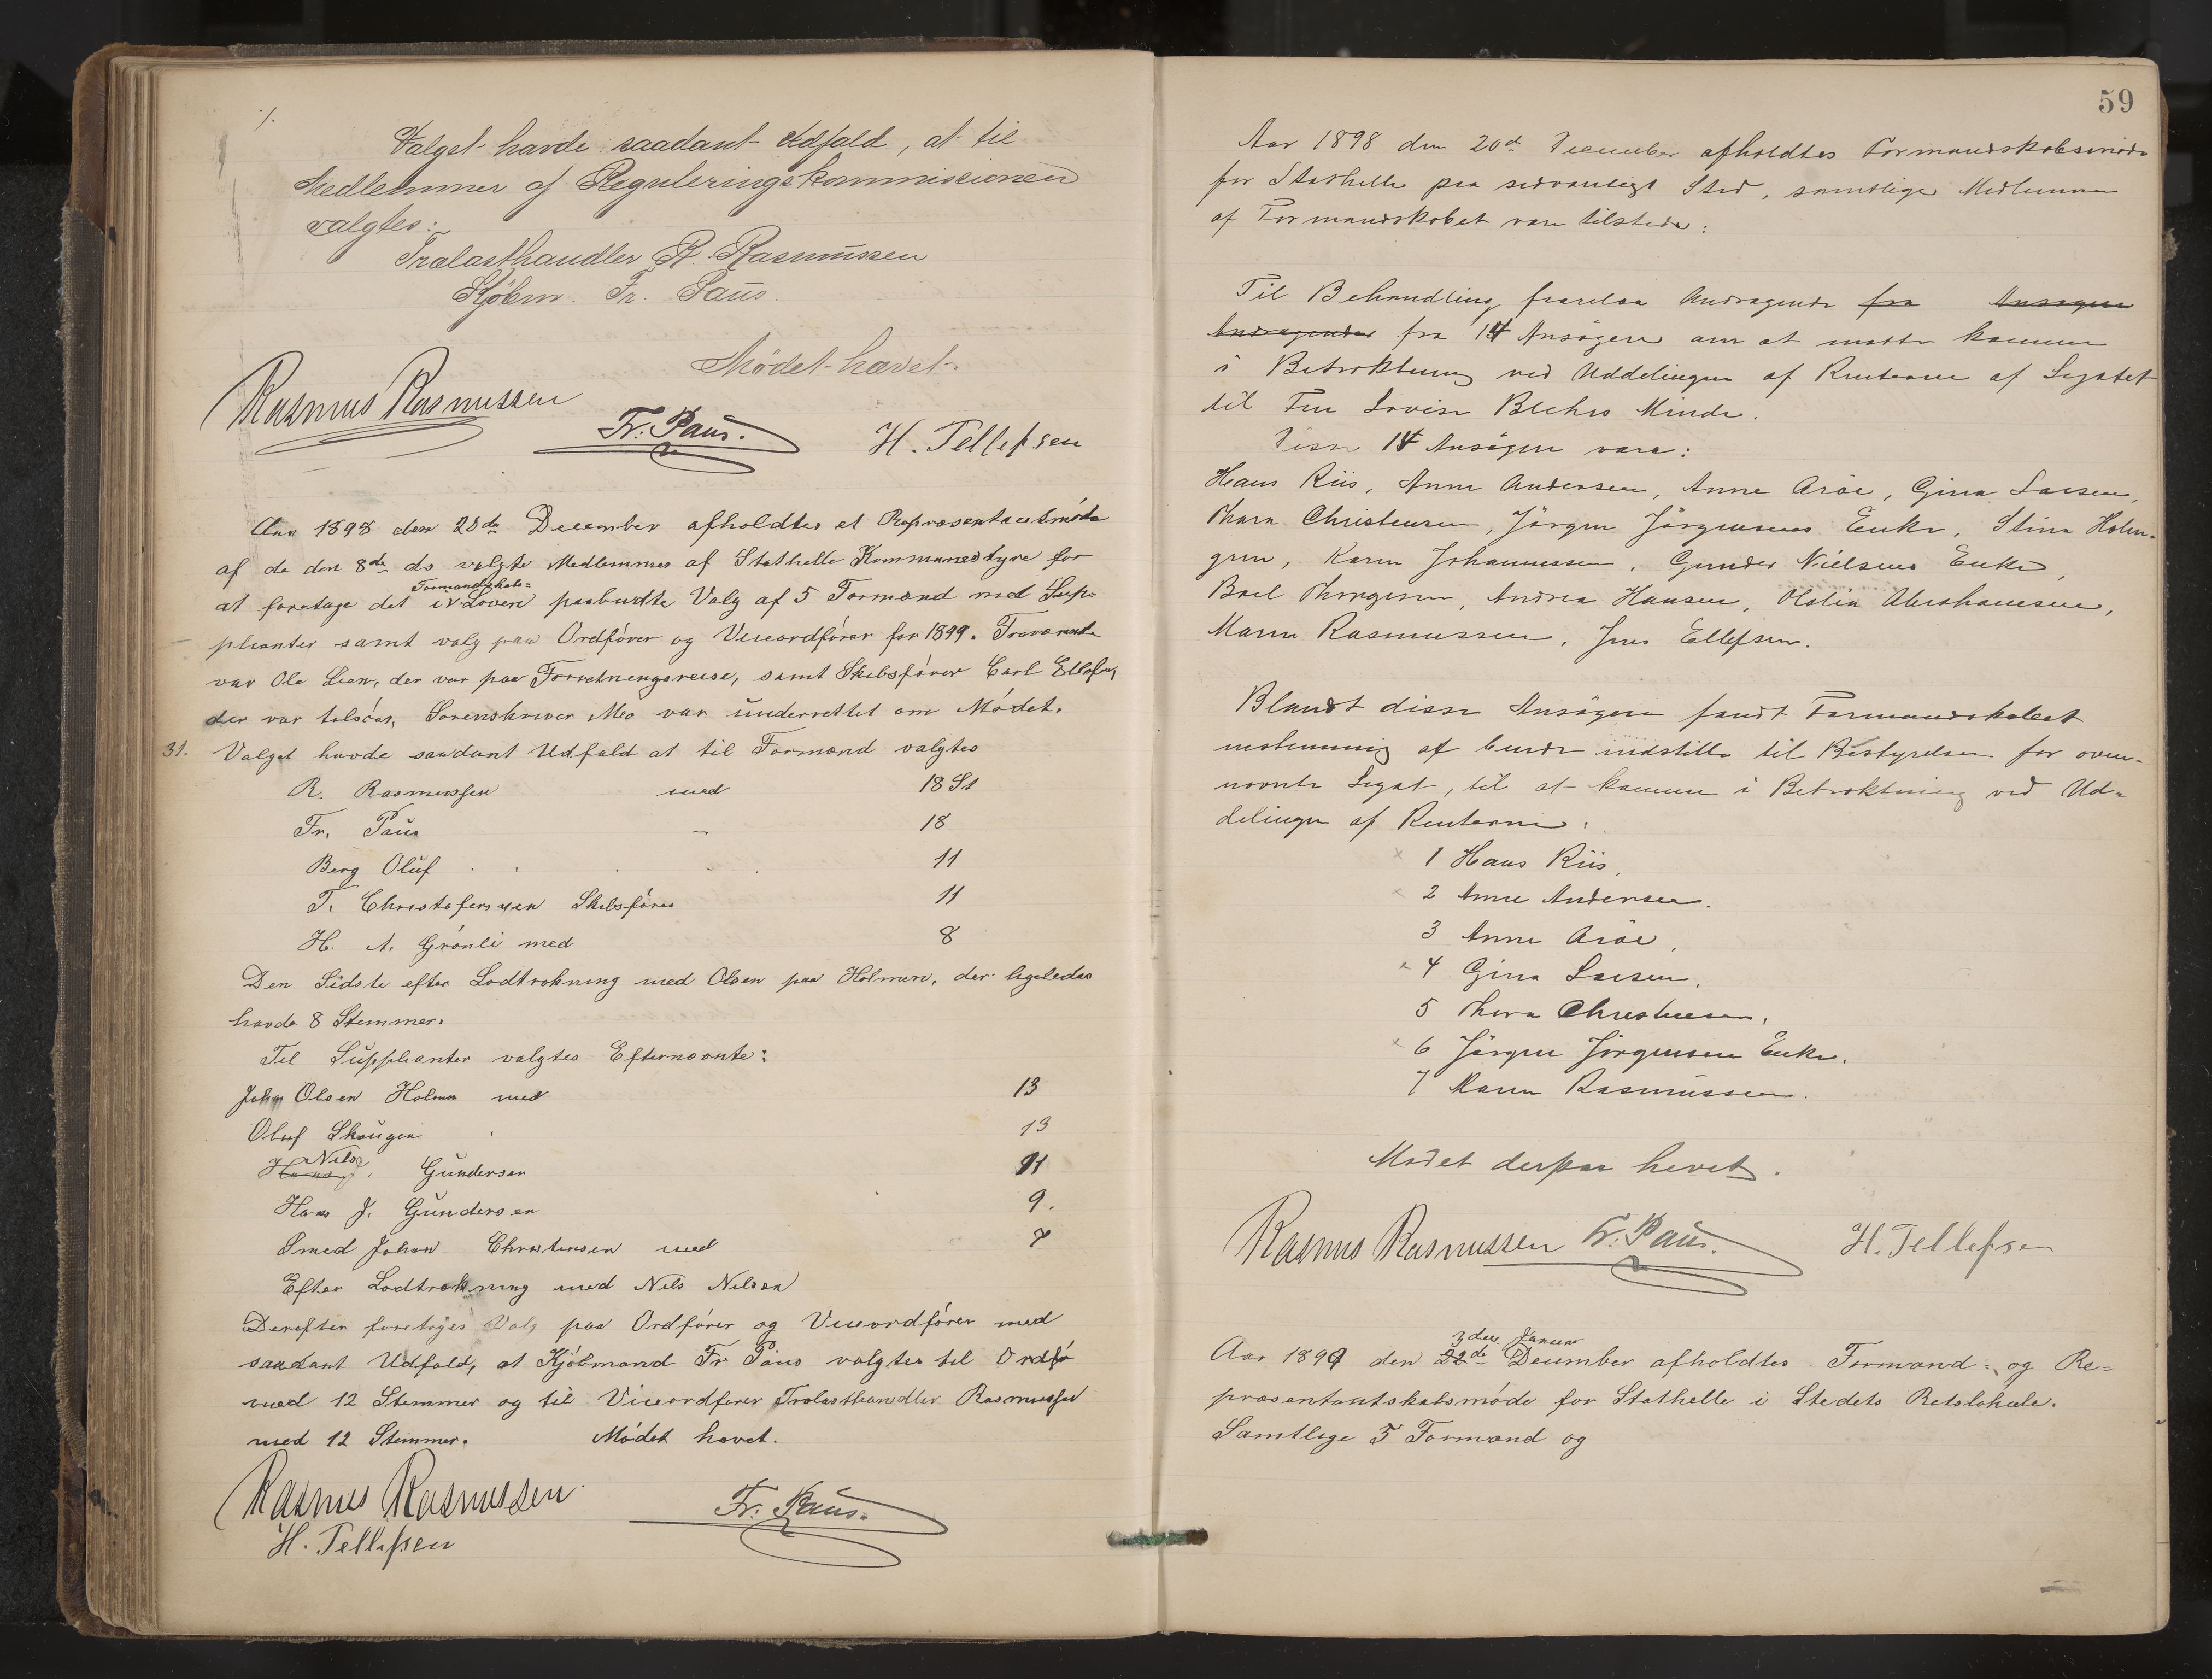 Valget havde saadant Udfald, at til
Medlemmer af Reguleringskommissionen
valgtes:
Trælasthandler R. Rasmussen
Kjöbm. Fr. Paus.
Mödet hævet.
Rasmus Rasmussen
Fr. Paus.
H. Tellefsen
Aar 1898 den 20de December afholdtes et Repræsentantmöde
af de den 8de ds valgte Medlemmer af Stathelle Kommunestyre for
at foretage det i Formandskabs=Loven paabudte Valg af 5 Formænd med Sup-
pleanter samt valg paa Ordförer og Viceordförer for 1899. Fraværende
var Ole Lien, der var paa Forretningsreise, samt Skibsförer Carl Ellefsen,
der var tilsöes, Sorenskriver Meo var underrettet om Mödet.
31. Valget havde saadant Udfald at til Formænd valgtes
R. Rasmussen med 18 St
Fr. Paus — 18
Berg Oluf 11
T. Christofersen Skibsförer 11
H. A. Grönli med 8
Den Sidste efter Lodtrækning med Olsen paa Holmen, der ligeledes
havde 8 Stemmer.
Til Suppleanter valgtes Efternævnte:
John Olsen Holmen med 13
Oluf Skougen 13
Hans Nils Gundersen 11
Hans J. Gundersen 9.
Smed Johan Christensen med 7
Efter Lodtrækning med Nils Nilsen
Derefter foretoges Valg paa Ordförer og Viceordförer med
saadant Udfald, at Kjöbmand Fr Paus valgtes til Ordfö
med 12 Stemmer og til Viceordförer Trælasthandler Rasmussen
med 12 Stemmer. Mödet hævet.
Rasmus Rasmussen
Fr. Paus.
H. Tellefsen
59
Aar 1898 den 20de December afholdtes Formandskabsmöde
for Stathelle paa sedvanligt Sted, samtlige Medlemmer
af Formandskabet vare tilstede:
Til Behandling forelaa Andragende fra Ansøgere
Andragender fra 14 Ansögere om at maatte komme
i Betraktning ved Uddelingen af Renterne af Legatet
til Fru Lovise Blehrs Minde.
Disse 14 Ansögere vare:
Hans Riis, Anne Andersen, Anne Aröe, Gina Larsen,
Thora Christensen, Jörgen Jörgensens Enke, Stina Holm-
gren, Karen Johannessen, Gunder Nielsens Enke,
Boel Thorgersen, Andrea Hansen, Olalia Abrahamsen,
Maren Rasmussen, Jens Ellefsen.
Blandt disse Ansögere fandt Formandskabet
enstemmig at burde indstille til Bestyrelsen for oven-
nævnte Legat, til at komme i Betraktning ved Ud-
delingen af Renterne:
1 Hans Riis,
2 Anne Andersen.
3 Anne Aröe,
4 Gina Larsen,
5 Thora Christensen,
6 Jörgen Jörgensens Enke.
7 Maren Rasmussen.
Mödet derpaa hevet.
Rasmus Rasmussen Fr. Paus. H. Tellefsen
3die Januar
Aar 1899 den 22de December afholdtes Formand- og Re=
præsentantskabsmöde for Stathelle i Stedets Retslokale.
Samtlige 5 Formænd og